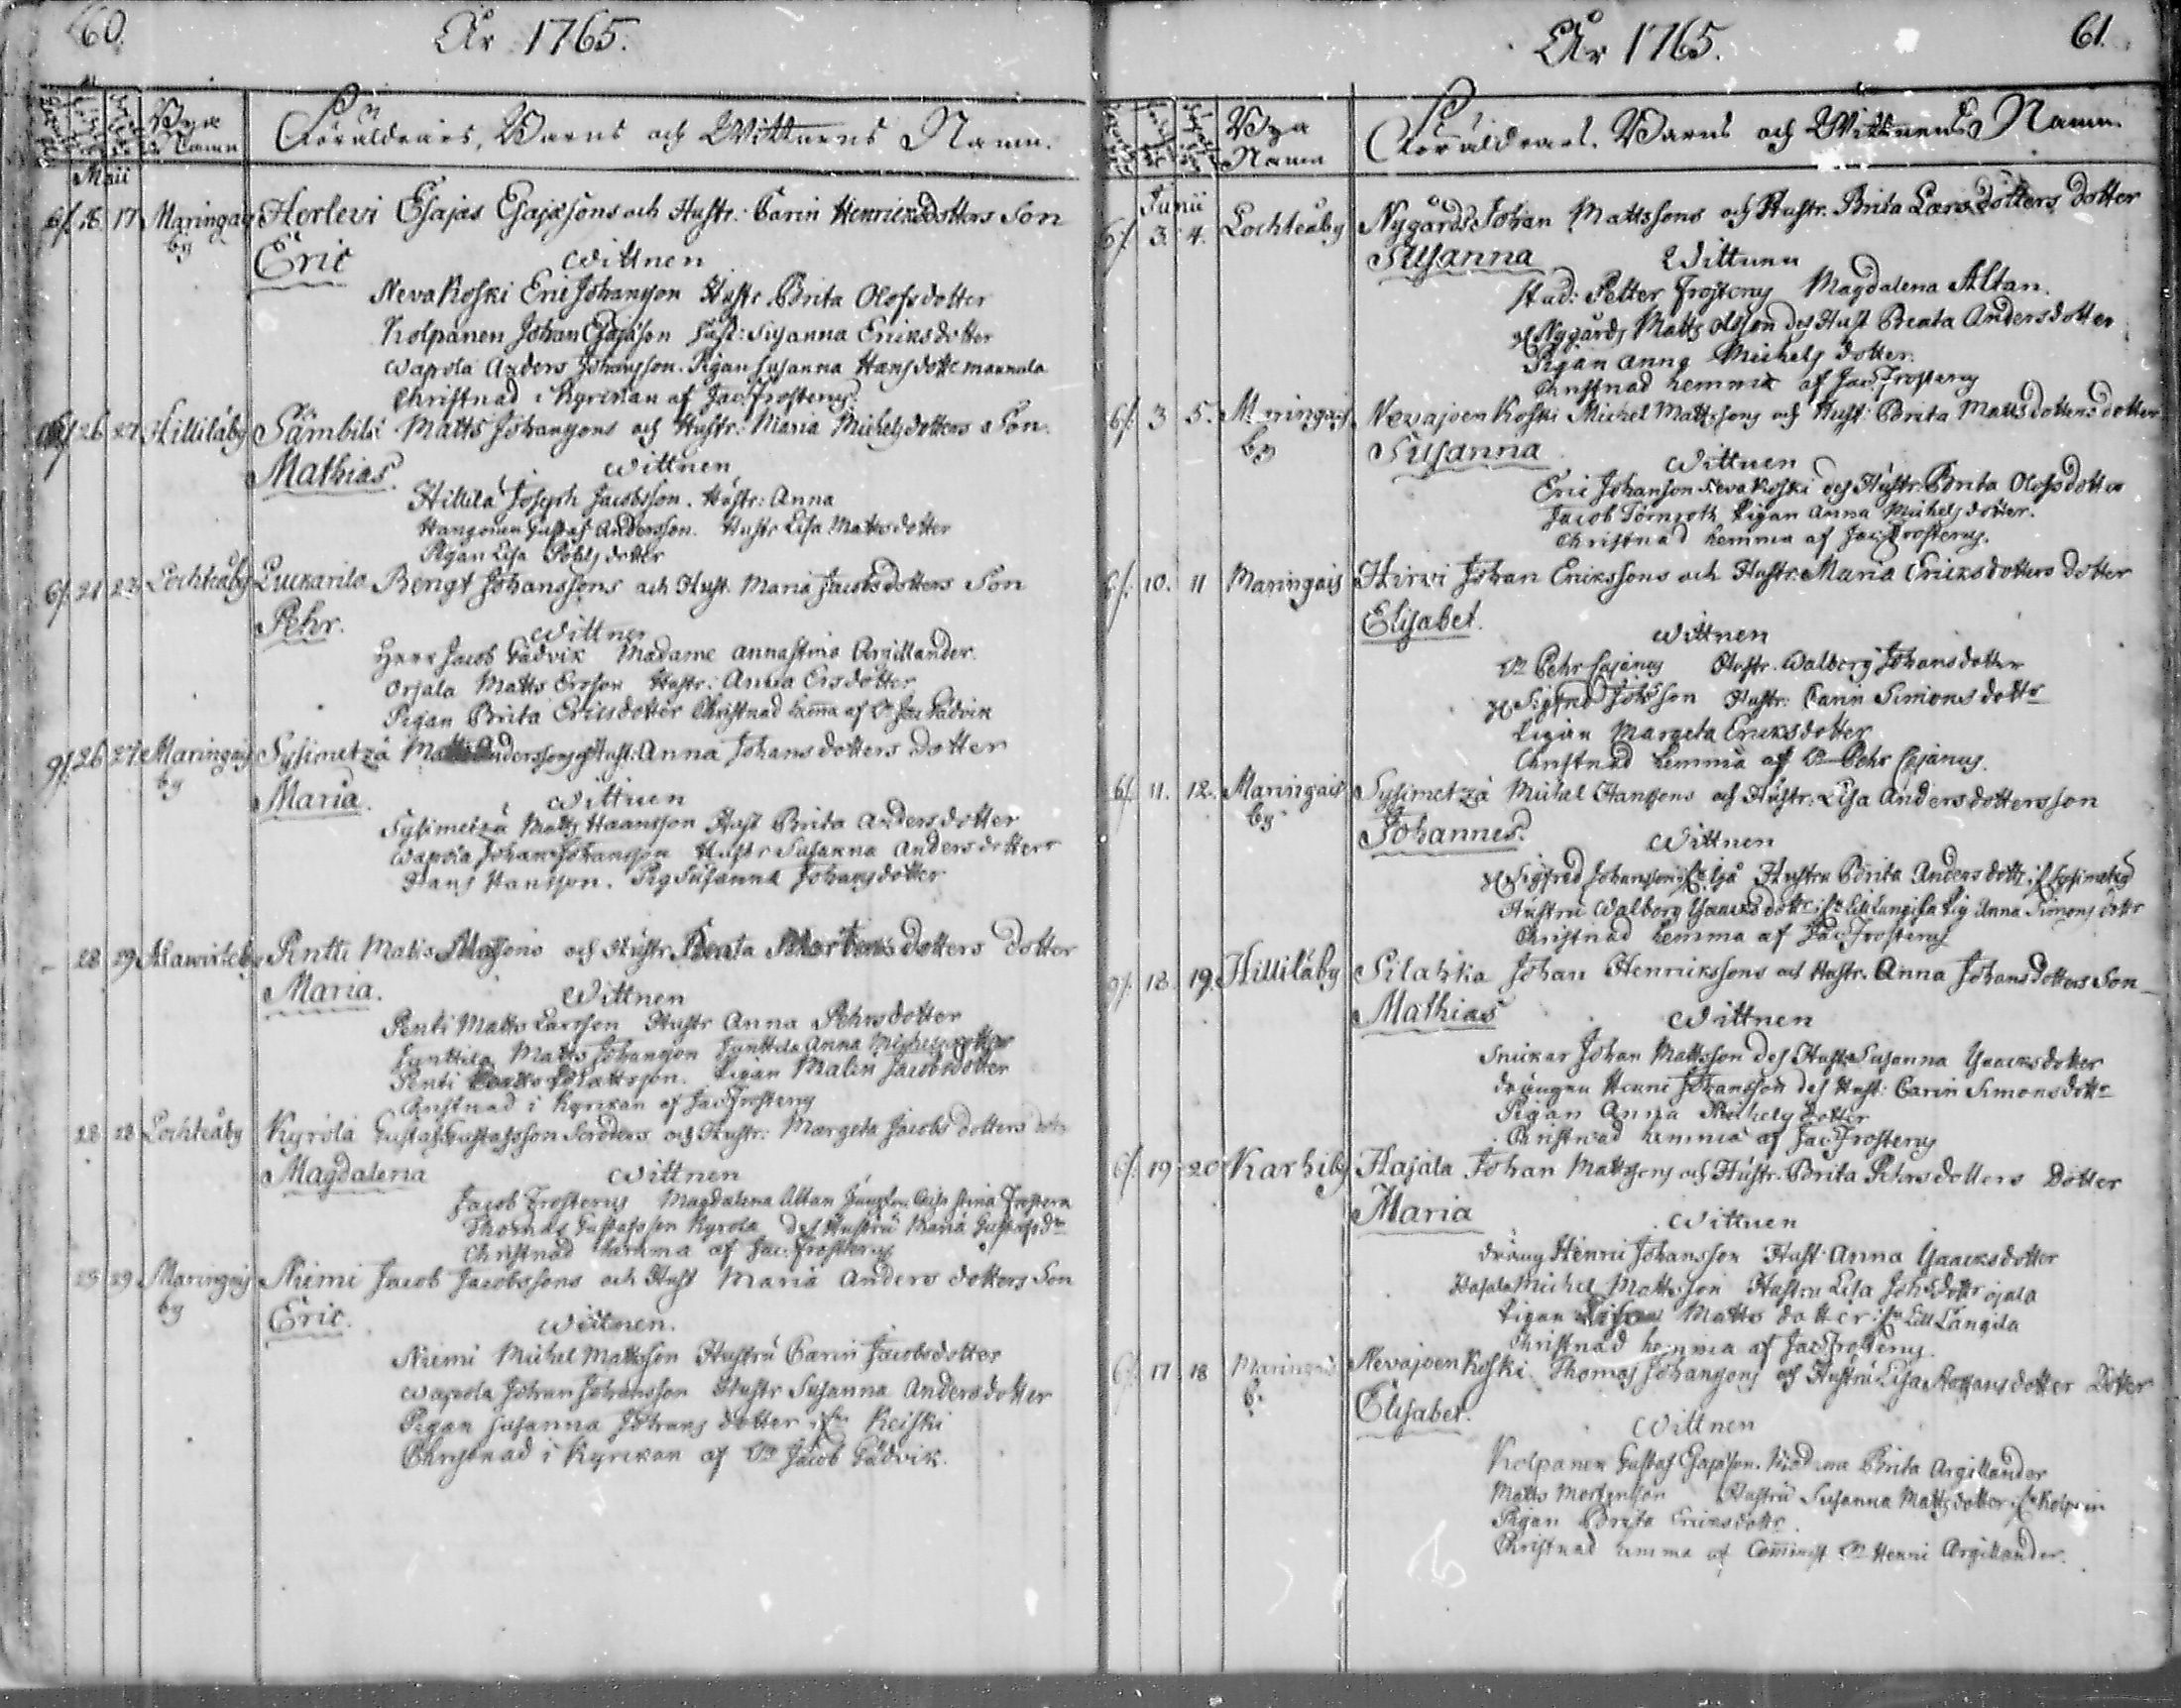 60.
År 1765.
Bya Namn
Föräldrars, Barns och Wittnens Namn.
Maij
6/ 16 17 Maringais by Herlevi Esajas Esajæsons och Hustr: Carin Henricsdotters Son
Eric Wittnen
Nevakoski Eric Johansson Hustr Brita Olofsdotter
Kolpanen Johan Esajæson Hust: Susanna Eriksdotter
Wapola Anders Johansson. Pigan Susanna Hansdotter mannala
Christnad i Kyrckan af Jac: Frosterus.
26 27 Hilliläby Sämbilä Matts Johanssons och Hustr: Maria Michelsdotters Son.
Mathias. Wittnen
Hillilä Joseph Jacobsson. Hustr: Anna
Gustaf Andersson. Hustr Lisa Mattsdotter
Pigan Lisa dotter
6/ 21 23 Lochteåby Luckarila Bengt Johanssons och Hust. Maria Jacobsdotters Son
Pehr. Wittnen
Herr Jacob Gadvik Madame Annastina Argillander.
Orjala Matts Ersson Hustr: Anna Ersdotter
Pigan Brita Ericsdotter Christnad hema af Dn Jac Gadvik
9/ 26 27 Maringais by Sysimetzä Matts Anderssons och Hust: Anna Johansdotters dotter
Maria. Wittnen
Sysimetzä Matts Haansson Hust Brita Andersdotter
Wapola Johan Johansson Hustr Susanna Andersdotter
Hans Hansson. Pig Susanna Johansdotter
28 29 Pentti Matts och Hustr. Beata Mårtensdotters dotter
Maria. Wittnen
Penti Matts Larsson Hustr Anna Pehrsdotter
Junttila Matts Johansson Junttila Anna Michelsdotter
Penti Mattsson. Pigan Malin Jacobsdotter
Christnad i Kyrckan af Jac: Frosterus
28 28 Lochteåby Kyrölä Gustaf Gustafsson och Hustr: Margeta Jacobsdotters dotr
Magdalena Wittnen
Jacob Frosterus Magdalena Altan Stina
Thomas Gustafsson Kyrola des Hustru Maria Gustafsdr
Christnad hemma af Jac: Frosterus
29 29 Maringais by Niemi Jacob Jacobssons och Hust Maria Anders dotters Son
Eric. Wittnen.
Niemi Michel Mattsson Hustru Carin Jacobsdotter
Wapola Johan Johansson Hustr Susanna Andersdotter
Pigan Susanna Johans dotter Keiski
Christnad i Kyrckan af Dn Jacob Gadvik.
År 1765.
61.
Bya Namn
Föräldrars, Barns och Wittnens Namn
Junii
6/ 3. 4. Lochteåby Nygårds Johan Mattssons och Hustr. Brita Larsdotters dotter
Susanna Wittnen
Stud: Petter Frosterus Magdalena Altan.
Nygårds Matts Olsson des Hust Beata Andersdotter
Pigan Anna Michels dotter.
Christnad hemma af Jac: Frosterus
6/ 3 5. Maringais by Nevajoenkoski Michel Mattssons och Hust: Brita Mattsdotters dotter
Susanna Wittnen
Eric Johanson Nevakoski des Hustr: Brita Olofsdotter
Jacob Törnroth Pigan Anna Michelsdotter.
Christnad hemma af Jac: Frosterus.
6/ 10. 11 Maringais Hirvi Johan Erikssons och Hustr. Maria Eriksdotters dotter
Elisabet. Wittnen
Dn Pehr Cajanus Hustr. Walborg Johansdotter
Sigfred Johsson Hustr: Carin Simonsdottr
Pigan Margeta Eriksdotter
Christnad hemma af Dn Pehr Cajanus.
6/ 11. 12. Maringais by Sysimetzä Michel Hanssons och Hustr: Lisa Andersdottersson
Johannes. Wittnen
Sigfred Johansson Hustru Brita Andersdottr Sysimetzä
Hustru Walborg Pig Anna Simonsdottr
Christnad hemma af Jac: Frosterus
9/ 18. 19. Hilliläby Pilahka Johan Henrikssons och Hustr. Anna Johansdotters Son
Mathias Wittnen
Snickar Johan Mattsson des Hustr Susanna Ysaacksdotter
drängen Henric Johansson des Hust: Carin Simonsdottr
Pigan Anna Michelsdotter
Christnad hemma af Jac: Frosterus
6/ 19 20 Karhiby Hajala Johan Mattssons och Hustr. Brita Pehrsdotters Dotter
Maria Wittnen
dräng Henric Johansson Hust: Anna Ysaacksdotter
Hajala Michel Mattsson Hustru Lisa Johsdottr ojala
Pigan Matts dotter Lill Långila
Christnad hemma af Jac: Frosterus.
6/ 17 18 Maringais by Nevajoenkoski Thomas Johanssons och Hustru Lisa dotter Dotter
Elisabet. Wittnen
Kolpanen Gustaf Esajsson. Madama Brita Argillander
Matts Mortensson Hustru Susanna Mattsdotter
Pigan Brita Ericksdottr.
Christnad hemma af Comminist. Dn Henric Argillander.